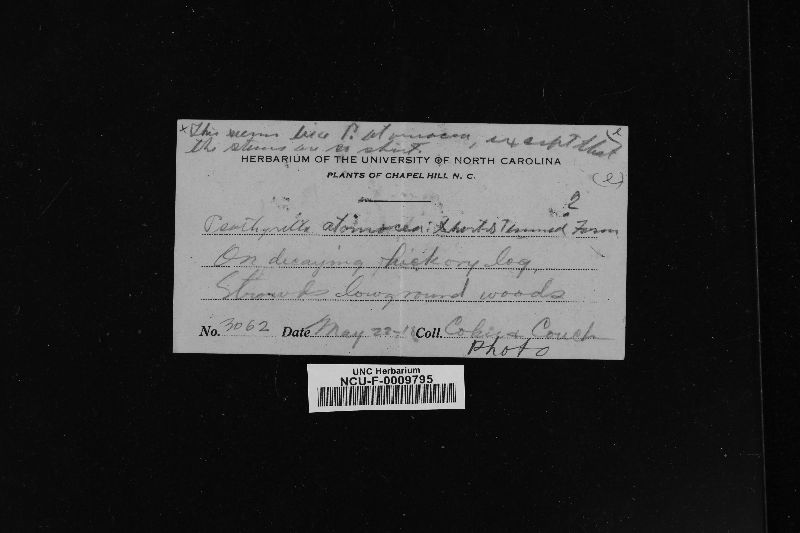 × This seems like P. atomacea, except that
the stems are so short.
HERBARIUM OF THE UNIVERSITY OF NORTH CAROLINA
PLANTS OF CHAPEL HILL N. C.
(e)
2
Psathyrella atomacea: Short Stemmed Form
On decaying hickory log,
Strowds lowground woods
No. 3062 Date May 22-1 Coll. Coker & Couch
Photo
UNC Herbarium
NCU-F-0009795